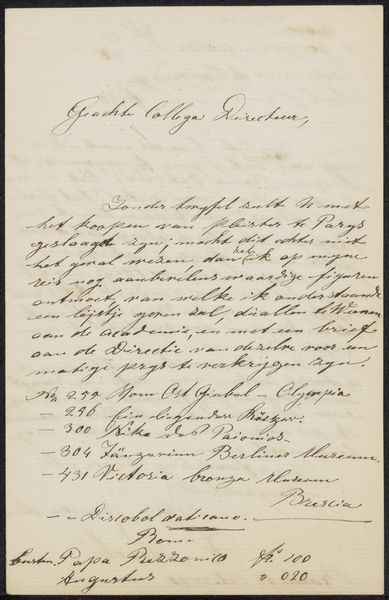 Geachte Collega Directeur,
Zonder twyfel zult U met
het koopen van pleister te Parys
geslaagd zyn; mocht dit echter niet
het geval wezen, dan heb ik op myne
reis nog aanbevelenswaardige figuren
ontmoet, van welke ik onderstaande
een lijstje geven zal, die allen te Weenen
aan de academie, en met een brief
aan de Directie van dezelve voor een
matige prys te verkrijgen zyn.
No. 255 Vom Ost Giebel - Olympia
- 256 Ein liegender
- 300 Nika des Paionios.
- 304 Tänzerin Berliner Museum.
- 431 Victoria bronze Museum
Brescia
- " Discobol vaticano.
Rome
busten Papa Rezzonico fr. 100
Augustus " 020